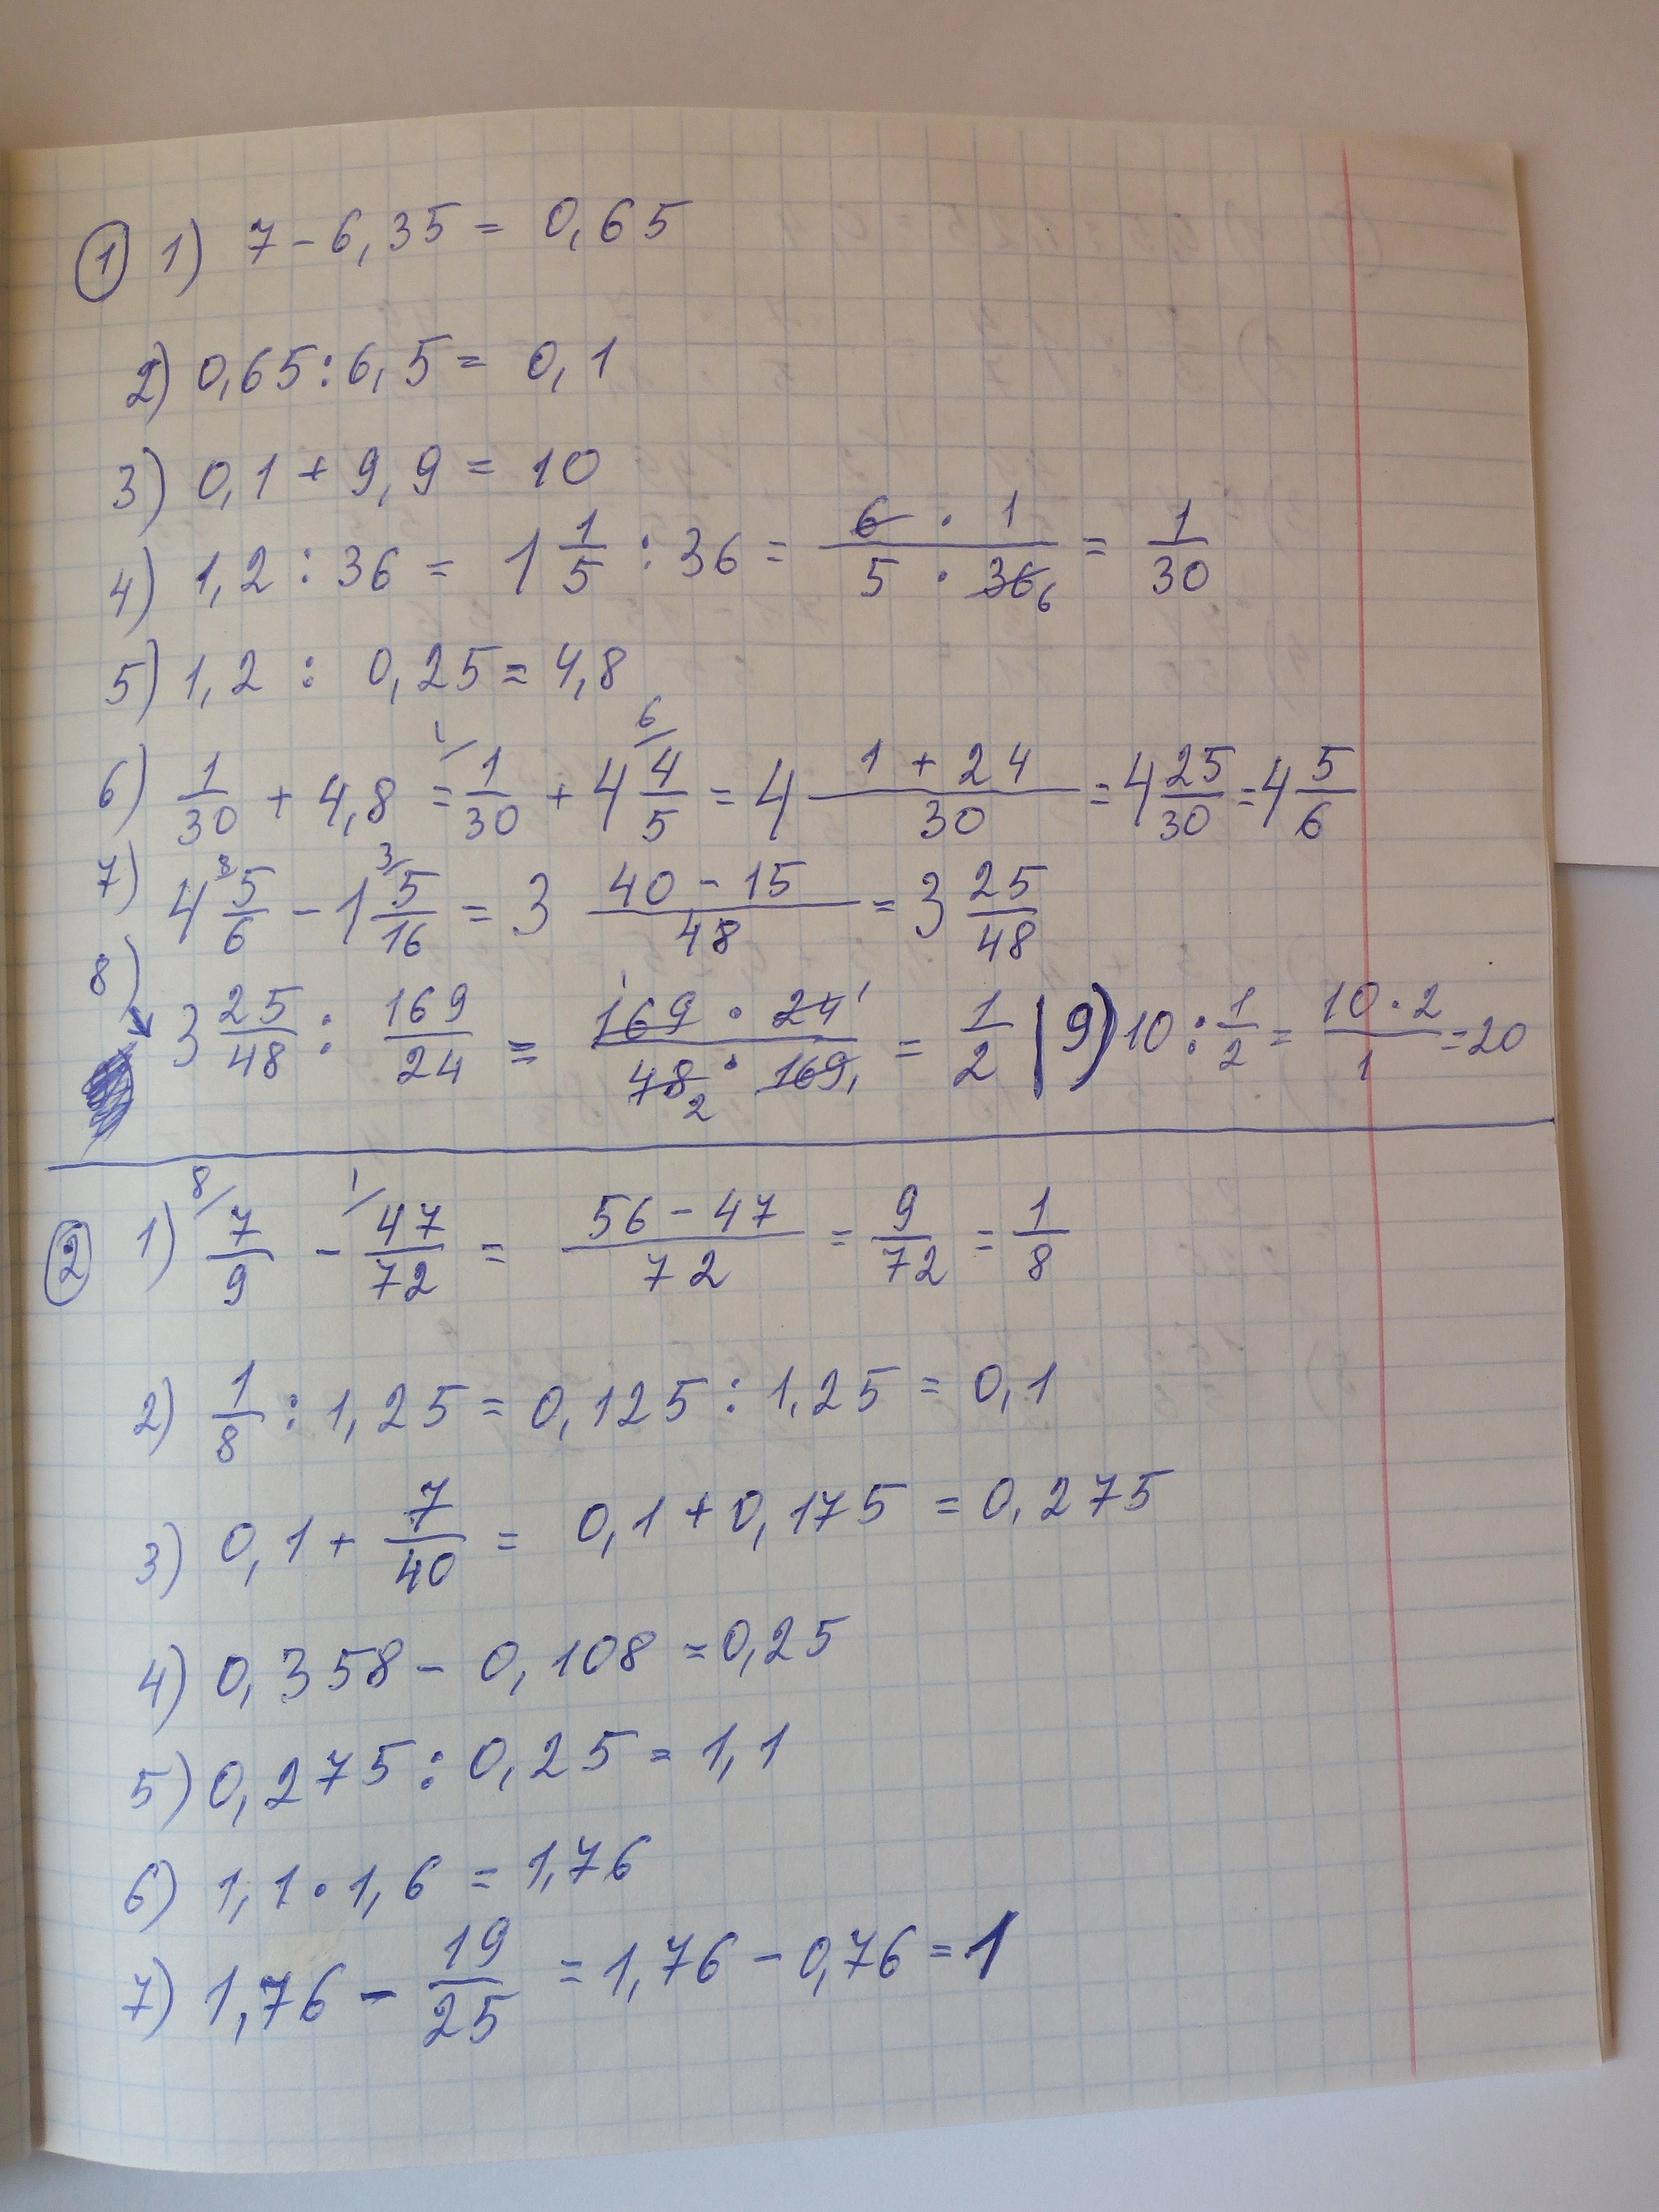 ① 1) 7 - 6,35 = 0,65
2) 0,65 : 6,5 = 0,1
3) 0,1 + 9,9 = 10
4) 1,2 : 36 = 1 1/5 : 36 = 6 · 1 / 5 · 36 6 = 1/30
5) 1,2 : 0,25 = 4,8
6) 1/30 + 4,8 = 1/ 1/30 + 4 6/ 4/5 = 4 1 + 24 / 30 = 4 25/30 = 4 5/6
7) 4 8/ 5/6 - 1 3/ 5/16 = 3 40 - 15 / 48 = 3 25/48
8) 3 25/48 : 169/24 = 1 169 · 24 1 / 48 2 · 169 1 = 1/2 | 9) 10 : 1/2 = 10 · 2 / 1 = 20
② 1) 8/ 7/9 - 1/ 47/72 = 56 - 47 / 72 = 9/72 = 1/8
2) 1/8 : 1,25 = 0,125 : 1,25 = 0,1
3) 0,1 + 7/40 = 0,1 + 0,175 = 0,275
4) 0,358 - 0,108 = 0,25
5) 0,275 : 0,25 = 1,1
6) 1,1 · 1,6 = 1,76
7) 1,76 - 19/25 = 1,76 - 0,76 = 1